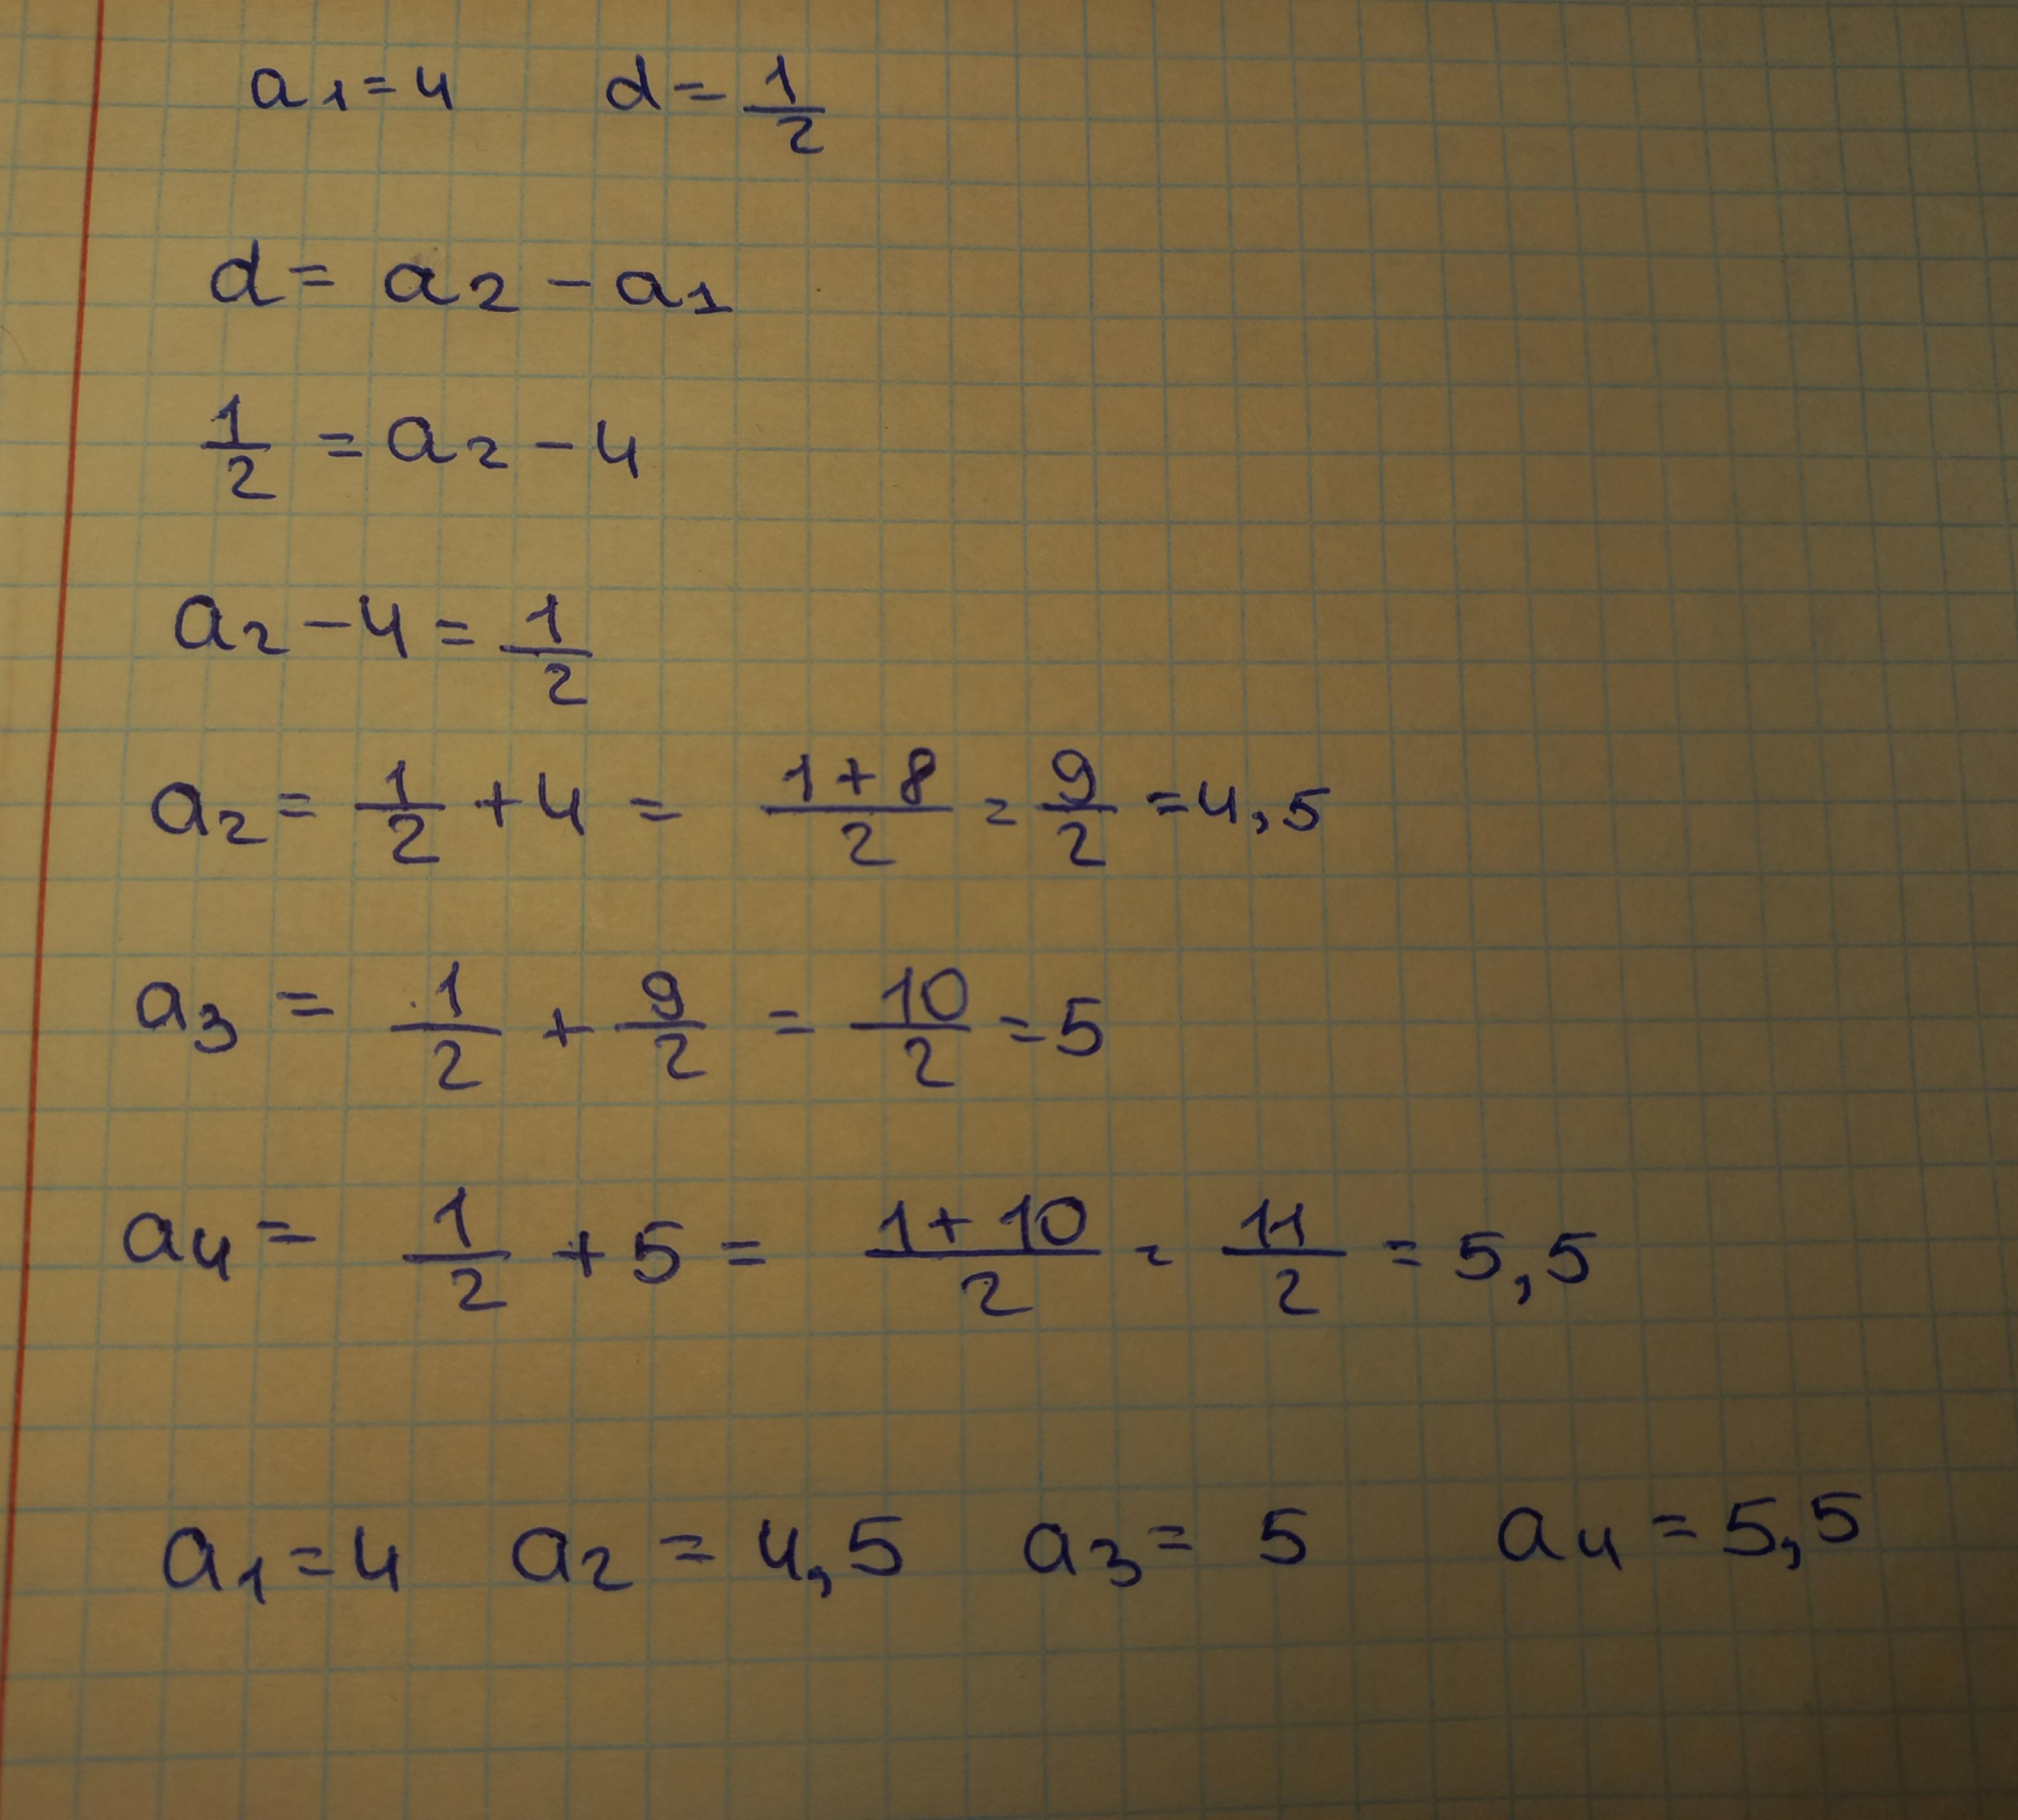 a₁=4 d=1/2
d= a₂-a₁
1/2 =a₂-4
a₂-4=1/2
a₂= 1/2+4 = (1+8)/2=9/2=4,5
a₃ = 1/2 + 9/2 = 10/2=5
a₄= 1/2+5= (1+10)/2=11/2=5,5
a₁=4 a₂=4,5 a₃= 5 a₄=5,5